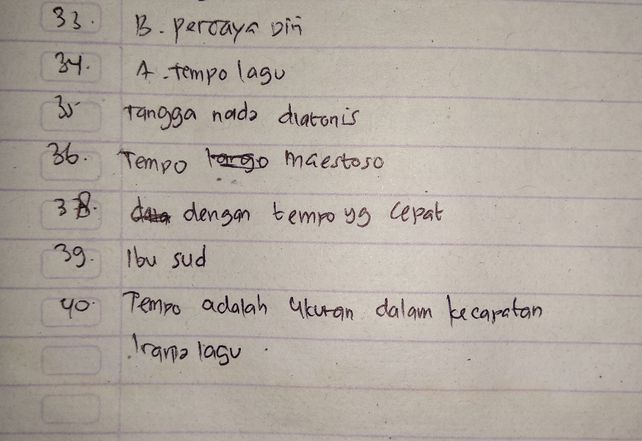 33. B. percaya Diri
34. A. tempo lagu
35 Tangga nada diatonis
36. Tempo largo maestoso
38. dengan tempo yg cepat
39. Ibu sud
40. Tempo adalah ukuran dalam kecapatan
irama lagu.